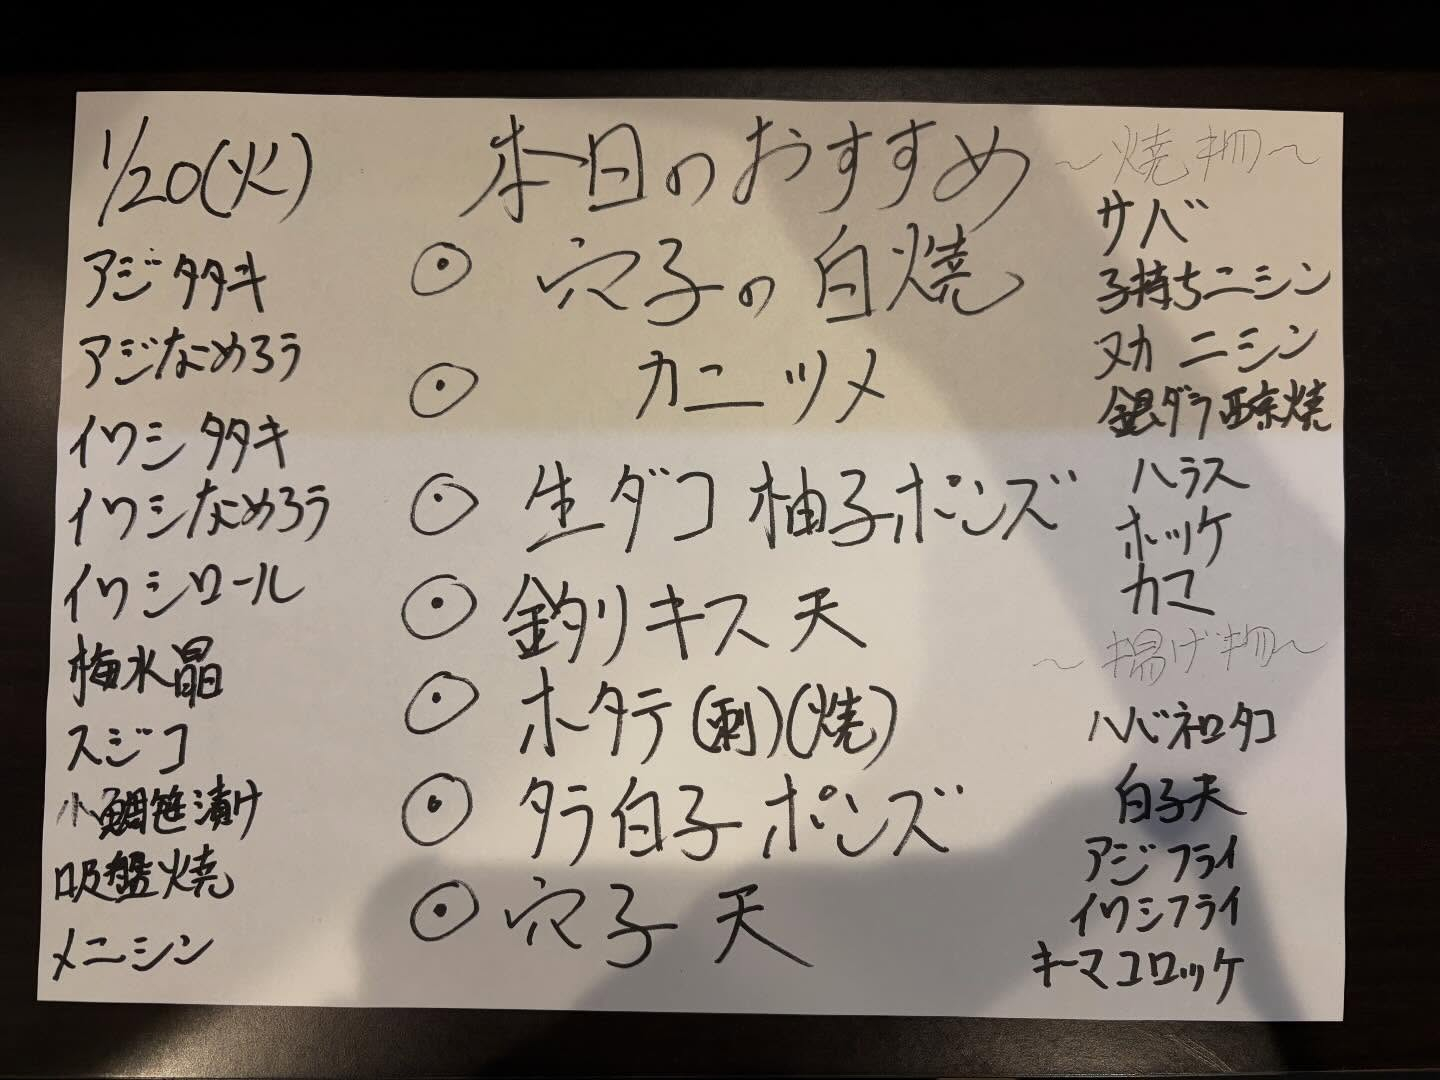 1/20(火)
アジタタキ
アジなめろう
イワシタタキ
イワシなめろう
イワシロール
梅水晶
スジコ
小鯛笹漬け
吸盤焼
メニシン
本日のおすすめ
◉ 穴子の白焼
◉ カニツメ
◉ 生ダコ 柚子ポンズ
◉ 釣りキス天
◉ ホタテ(刺)(焼)
◉ タラ白子ポンズ
◉ 穴子天
〜焼き物〜
サバ
子持ちニシン
ヌカニシン
銀ダラ西京焼
ハラス
ホッケ
カマ
〜揚げ物〜
ハバネロタコ
白子天
アジフライ
イワシフライ
キーマコロッケ